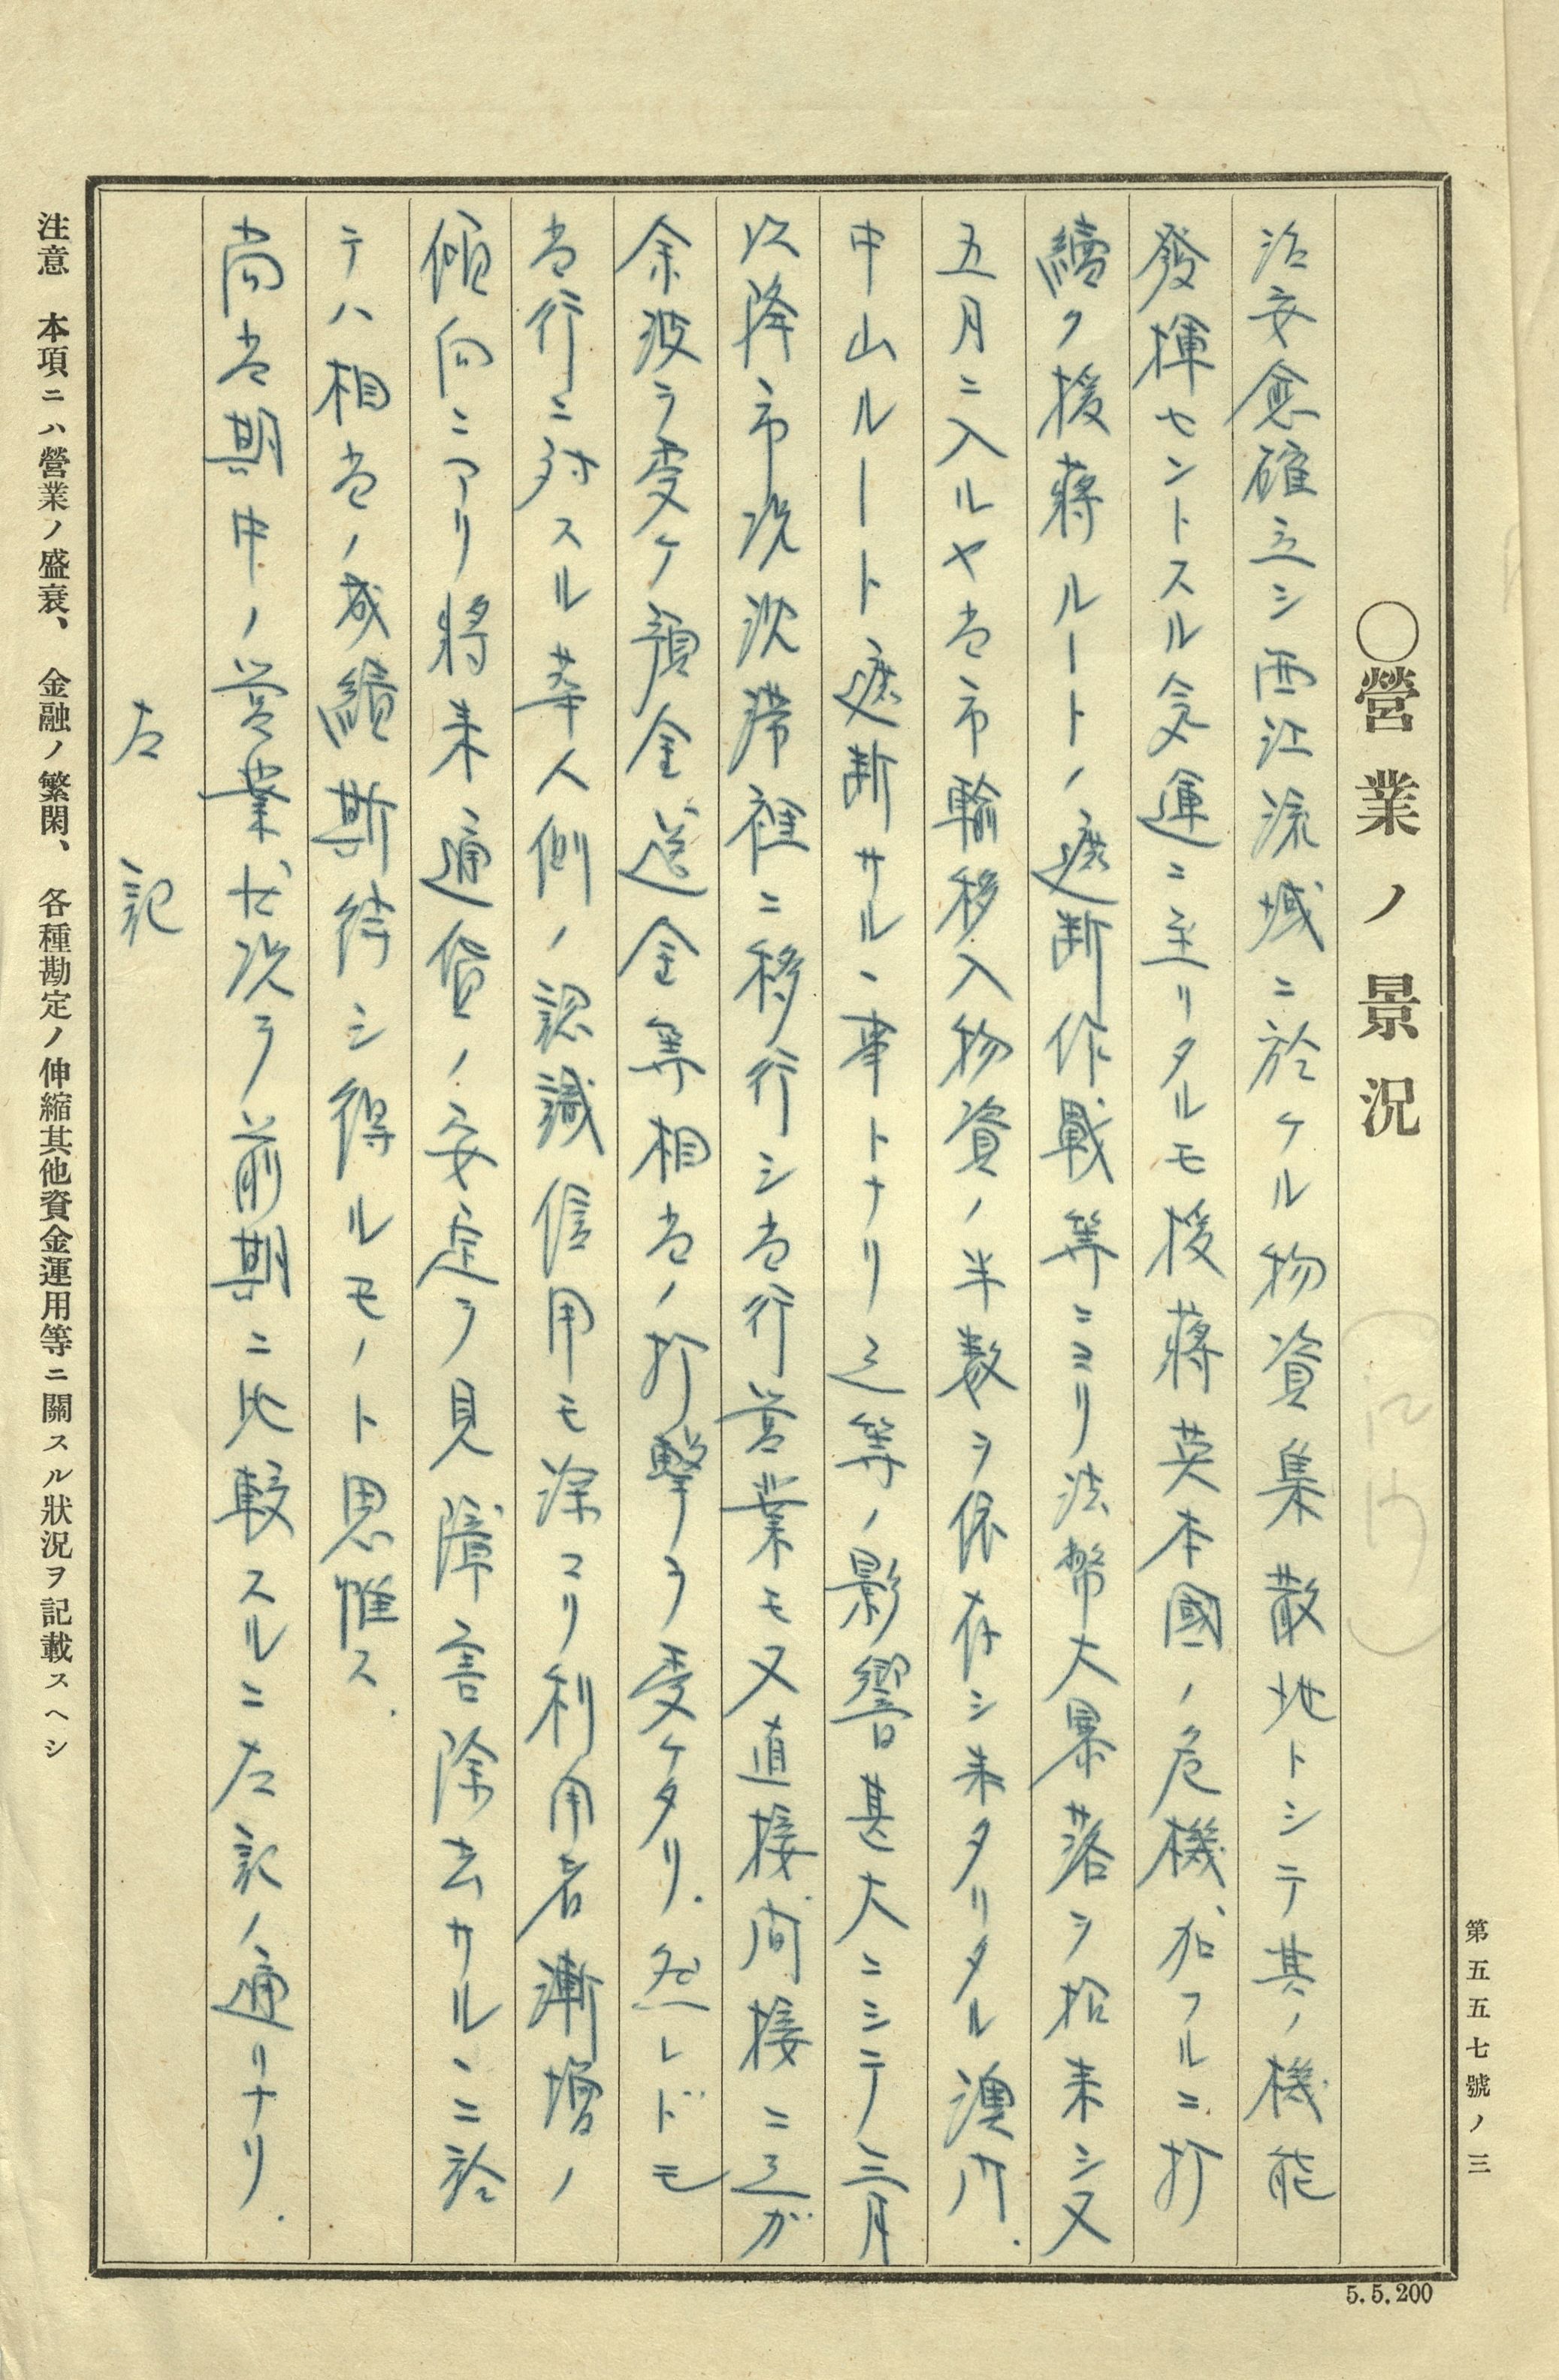 第五五七號ノ三
〇營業ノ景況
治安愈確立シ西江流域ニ於ケル物資集散地トシテ其ノ機能
發揮セントスル気運ニ至リタルモ援蔣英本國ノ危機加フルニ打
續ク援蔣ルートノ遮断作戰等ニヨリ法幣大暴落ヲ招来シ又
五月ニ入ルヤ当市輸移入物資ノ半数ヲ依存シ来タリタル澳門、
中山ルート遮断サルヽ事トナリ之等ノ影響甚大ニシテ三月
以降市況沈滞裡ニ移行シ当行営業モ又直接間接ニ之ガ
余波ヲ受ケ預金送金等相当ノ打撃ヲ受ケタリ.然レドモ
当行ニ対スル華人側ノ認識信用モ深マリ利用者漸增ノ
傾向ニアリ將来通貨ノ安定ヲ見障害除去サルヽニ於
テハ相当ノ成績斯待シ得ルモノト思惟ス.
尚当期中ノ営業状況ヲ前期ニ比較スルニ左記ノ通リナリ.
左記
注意 本項ニハ營業ノ盛衰、金融ノ繁閑、各種勘定ノ伸縮其他資金運用等ニ關スル狀況ヲ記載スヘシ
5.5.200